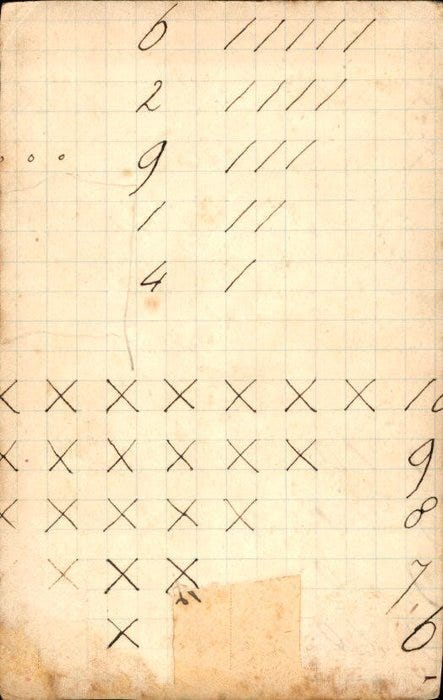 6 / / / / /
2 / / / /
° ° 9 / / /
1 / /
4 /
X X X X X X X 10
X X X X X X 9
X X X X X 8
X X X 7
X 6